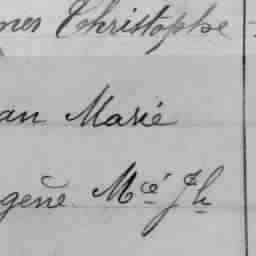 mes Christophe
an Marie
gène M^cé J^h